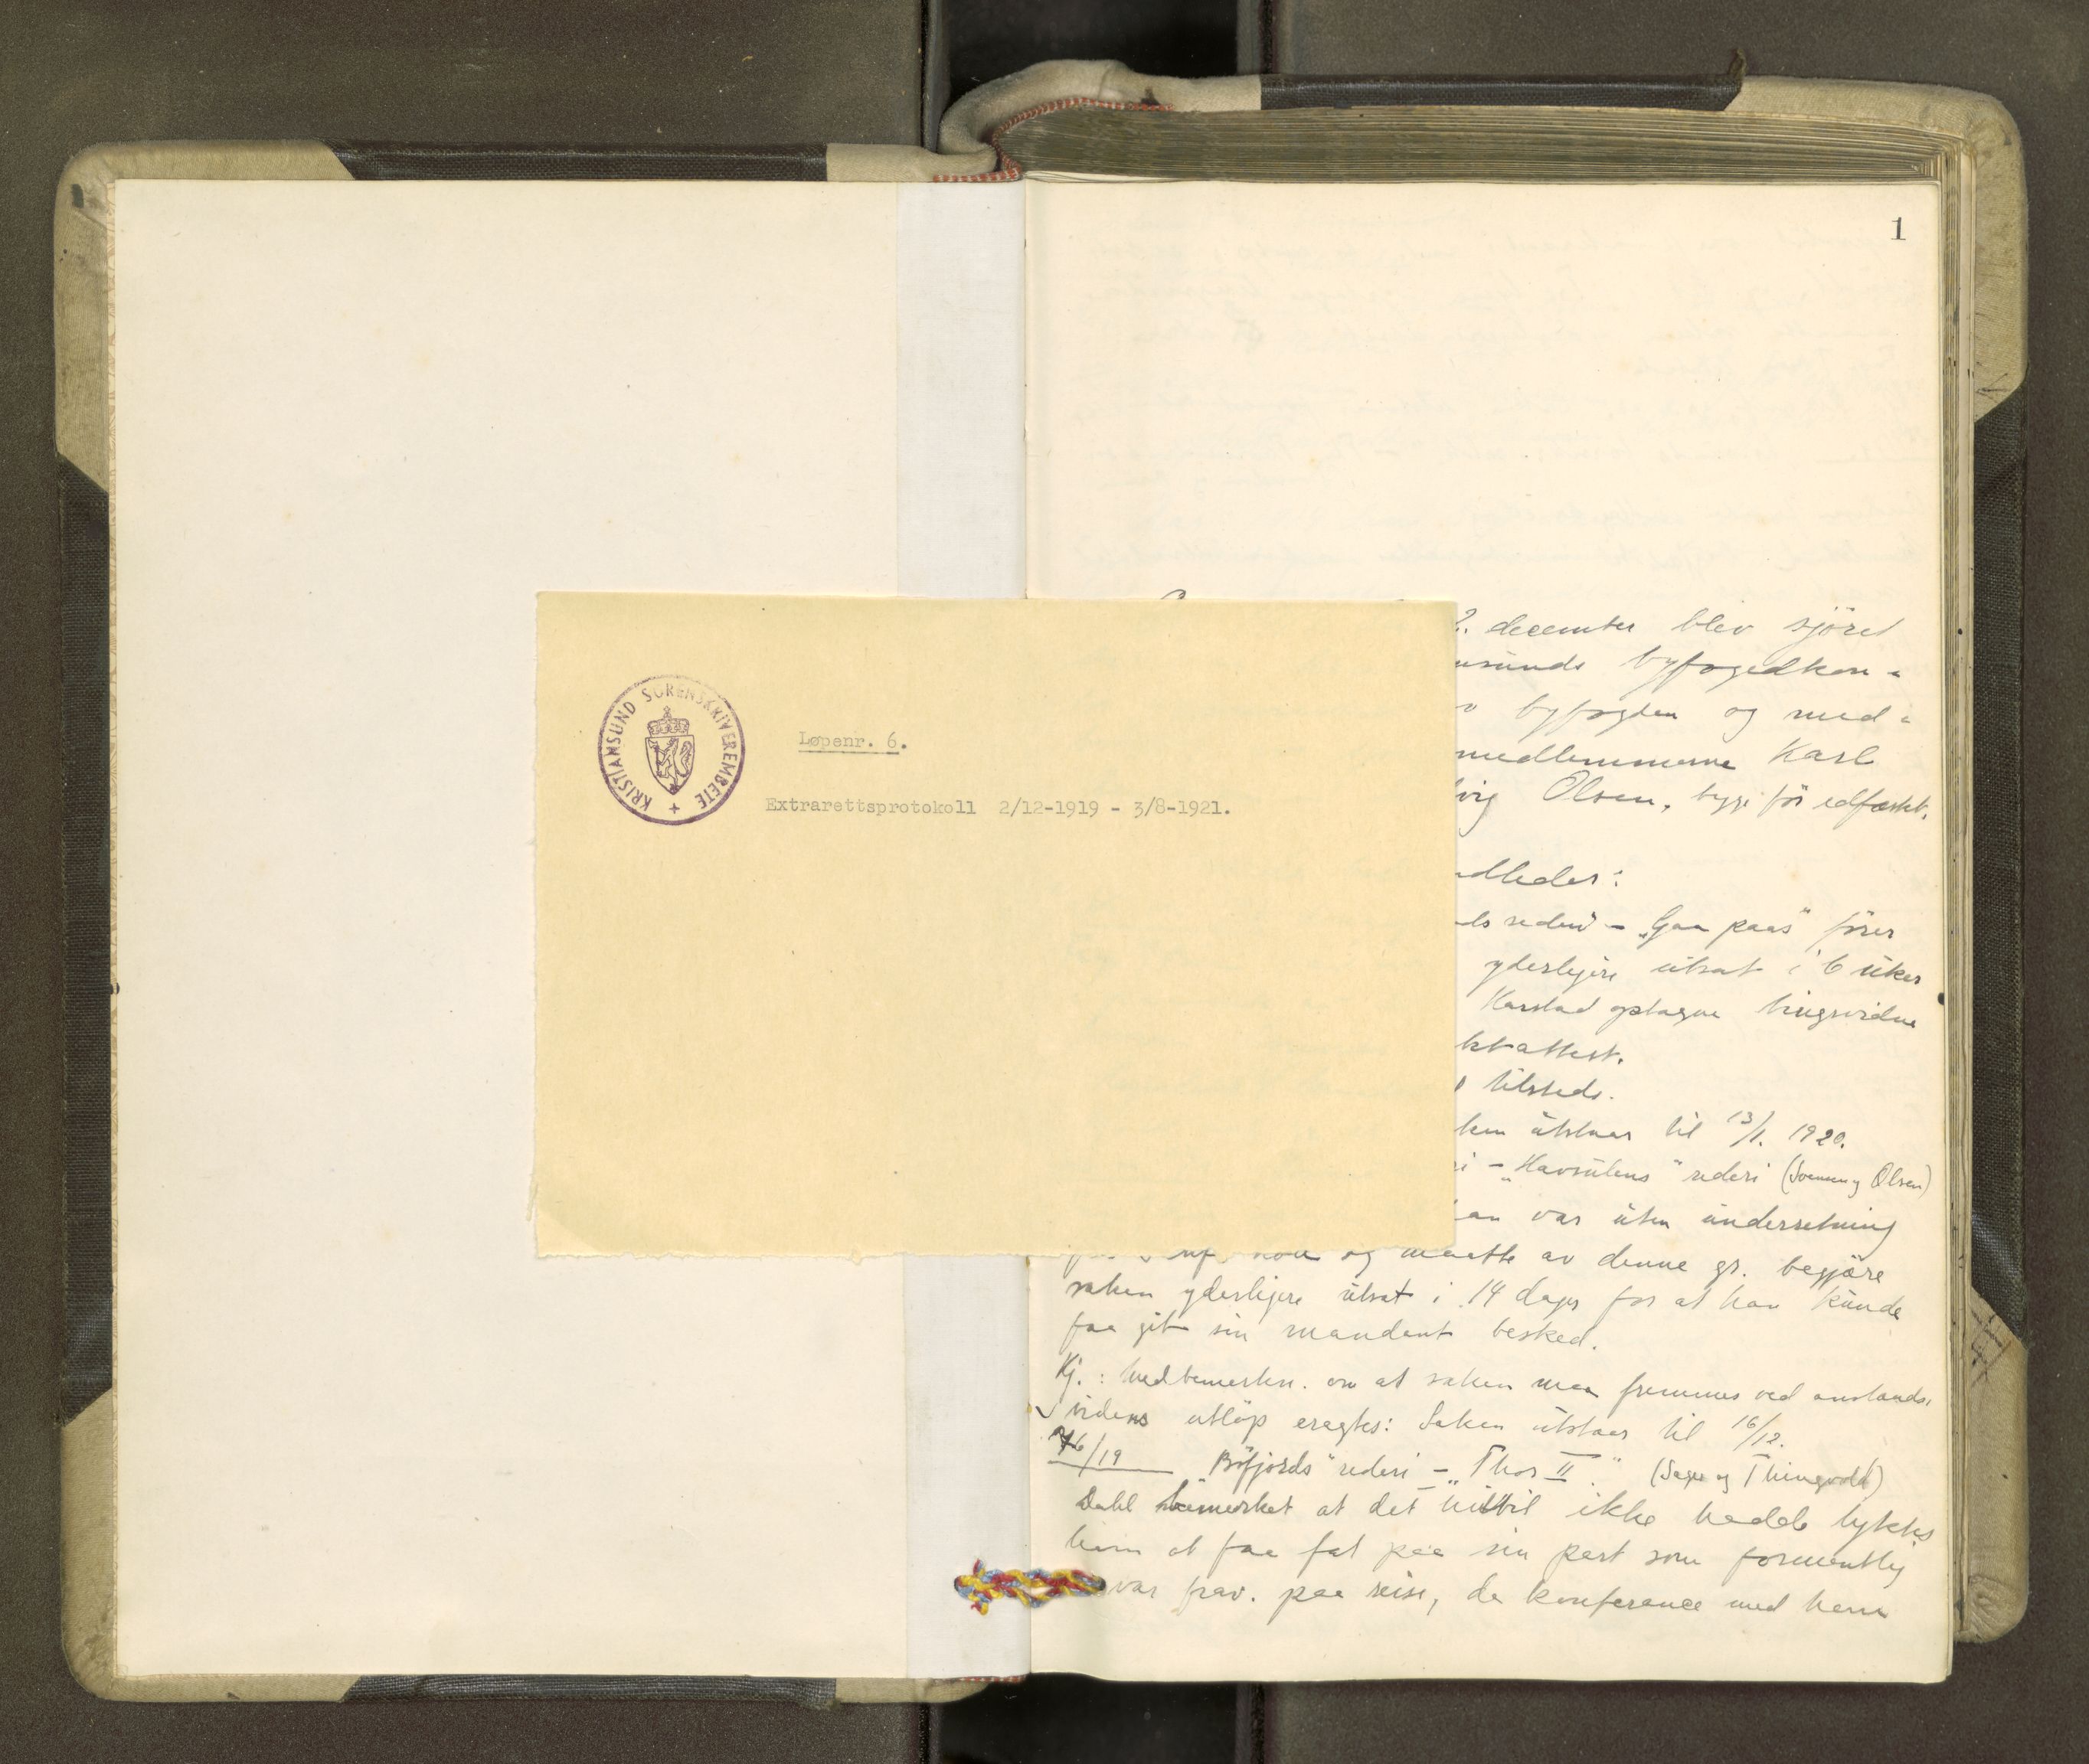 1
KRISTIANSUND SORENSKRIVEREMBETE
Løpenr. 6.
Extrarettsprotokoll 2/12-1919 - 3/8-1921.
2. december blev sjöret
byfogedkon-
byfogden og med-
medlemmerne Karl
Olsen, begge för edfæstet.
"Gaa paas" förer
yderligere utsat i 6 uker
Karstad optagne tingsvidne
attest.
tilstede.
utstaar til 13/1. 1920.
- "Havsulens" rederi (Svensen og Olsen)
var uten underretning
og maatte av denne gr. begjære
saken yderligere utsat i 14 dager for at han kunde
faa git sin mandant besked.
Kj.: Med bemerkn. om at saken maa fremmes ved anstands-
tidens utløp eragtes: Saken utstaar til 16/12.
/19 "Böfjords" rederi - "Thor II." (Sager og Thingvold)
Dahl bemerket at det hittil ikke hadde lyktes
ham at faa fat paa sin part som formentlig
var frav. paa reise, da konferance med ham